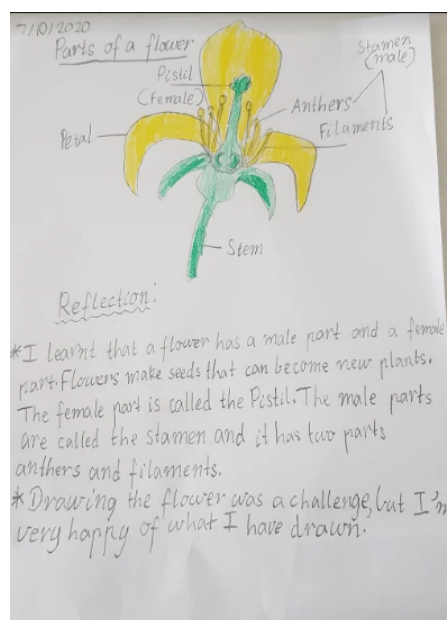 7/10/2020
Parts of a flower
Stamen
(male)
Pistil
(Female)
Anthers
Filaments
Petal
Stem
Reflection:
*I learnt that a flower has a male part and a female
part. Flowers make seeds that can become new plants.
The female part is called the Pistil. The male parts
are called the stamen and it has two parts
anthers and filaments.
*Drawing the flower was a challenge, but I'm
very happy of what I have drawn.